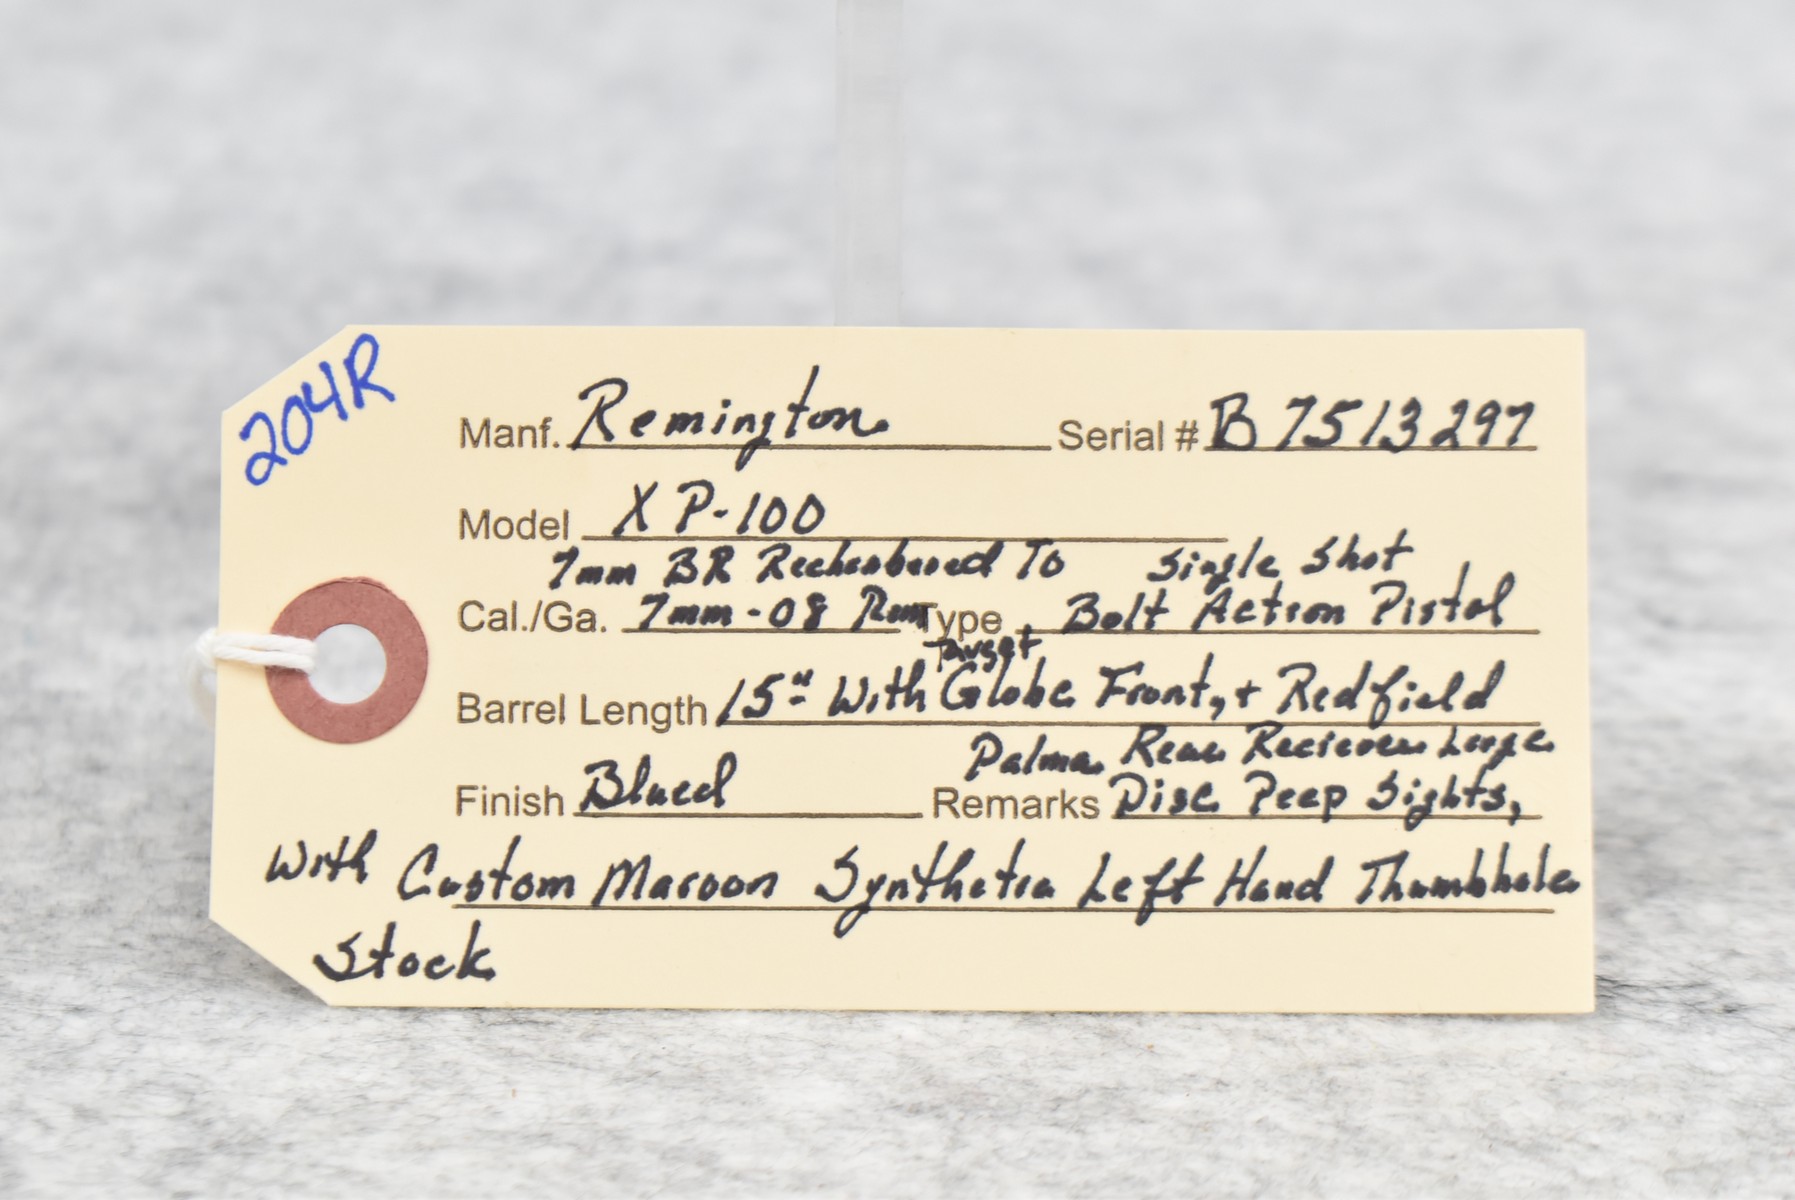 204R
Manf. Remington Serial # B7513297
Model XP-100
7mm BR Rechambered To Single Shot
Cal./Ga. 7mm-08 Rem Type Bolt Action Pistol
Target
Barrel Length 15" With Globe Front, + Redfield
Palma Rear Reciever Large
Finish Blued Remarks Disc Peep Sights,
With Custom Maroon Synthetic Left Hand Thumbhole
Stock